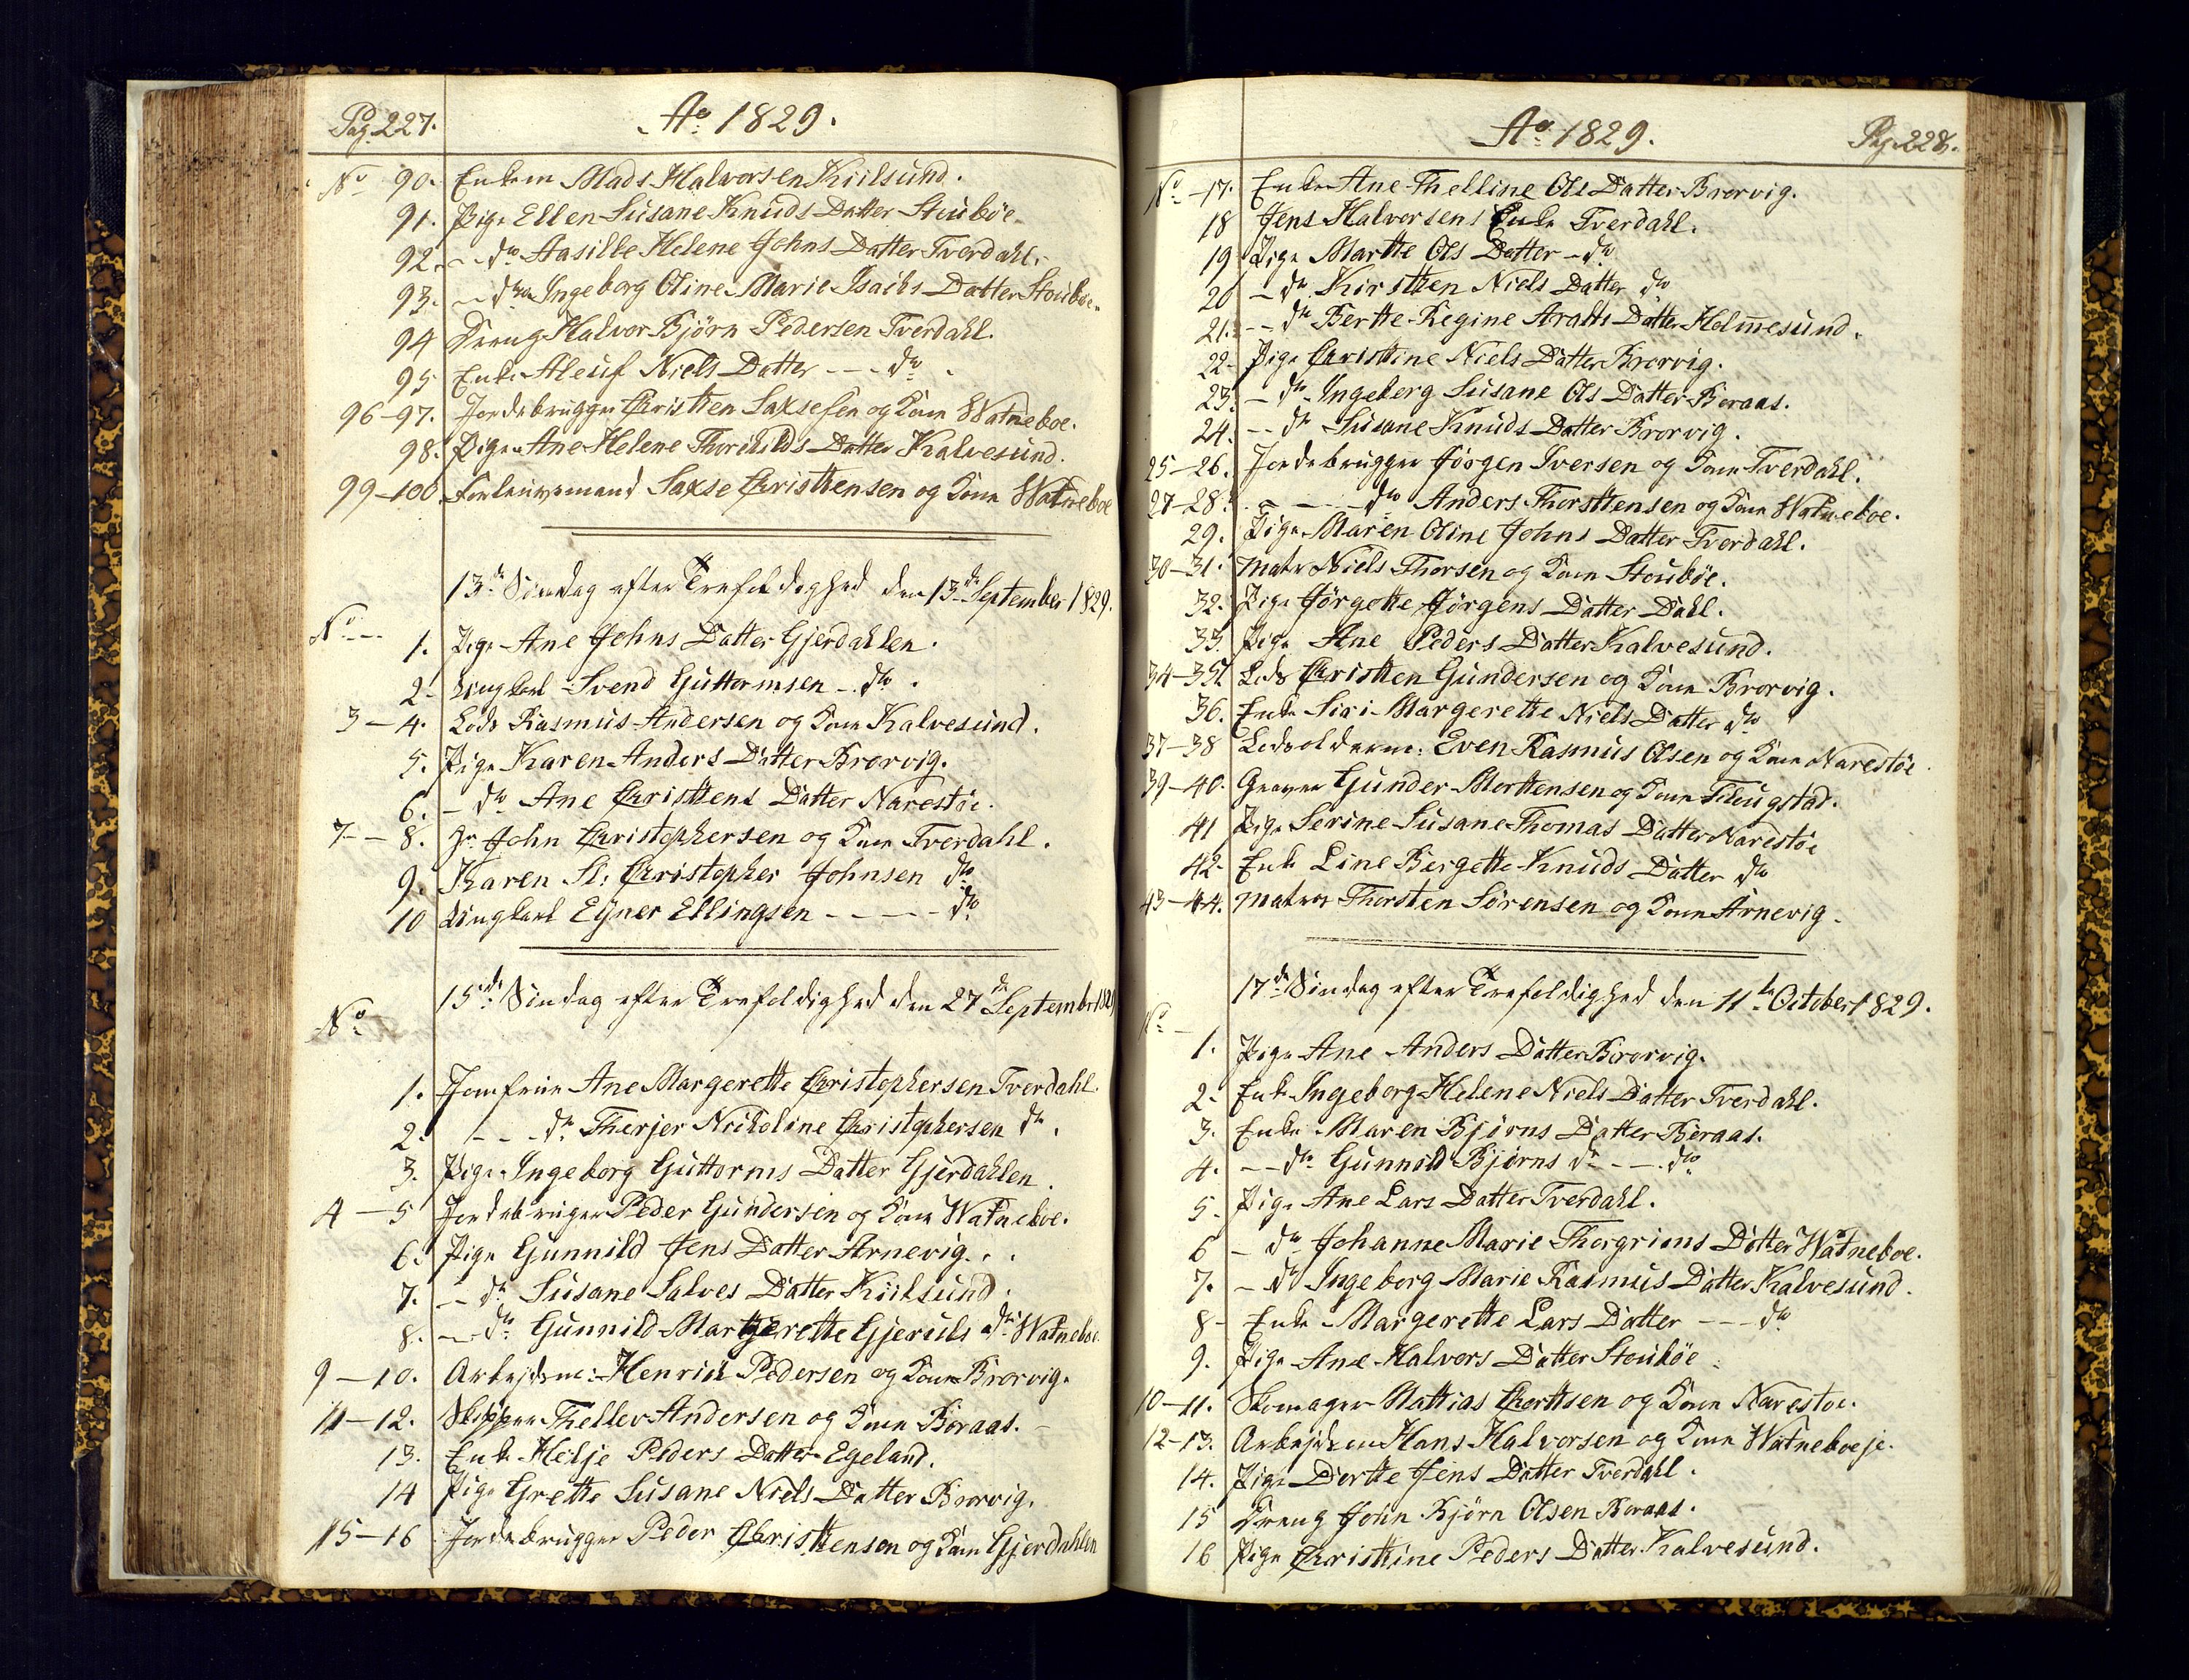 Pag. 227.
Ao 1829.
No 90. Enkem Mads Halvorsen Kiilsund.
91. Pige Ellen Susane Knuds Datter Stoubøe.
92. - do Aasille Helene Johns Datter Tverdahl.
93. - do Ingeborg Oline Marie Isachs Datter Stoubøe.
94 Dreng Halvor Bjørn Pedersen Tverdahl.
95 Enke Aleuf Niels Datter - - - do
96-97. Jordebrugger Christen Saxsesen og Kone Watneboe.
98. Pige Ane Helene Thorkilds Datter Kalvesund.
99-100. Forleuvsmand Saxse Christensen og Kone Watneboe
13de Søndag efter Trefoldighed den 13de September 1829.
No -
1. Pige Ane Johns Datter Gjerdahlen.
2- Ungkarl Svend Guttormsen - do.
3-4. Lods Rasmus Andersen og Kone Kalvesund.
5. Pige Karen Anders Datter Brorvig.
6. - do Ane Christens Datter Narestøe.
7--8. Hr. John Christophersen og Kone Tverdahl.
9. Karen Sl: Christopher Johnsen do
10 Ungkarl Ejner Ellingsen - - - - - do
15de Søndag efter Trefoldighed den 27de September 1829
No
1. Jomfrue Ane Margerette Christophersen Tverdahl.
2. - - - do Therjer Nickoline Christophersen do.
3. Pige Ingeborg Guttorms Datter Gjerdahlen.
4-5 Jordebruger Peder Gundersen og Kone Watneboe.
6. Pige Gunnild Jens Datter Arnevig.
7. - do Susane Salves Datter Kiilsund.
8. - do Gunnild Margerette Gjeruls dtr Watneboe.
9-10. Arbejdsm: Henrich Pedersen og Kone Brorvig.
11-12. Skipper Thellev Andersen og Kone Boraas.
13. Enke Helje Peders Datter Egeland.
14 Pige Grette Susane Niels Datter Brorvig.
15-16 Jordebrugger Peder Christensen og Kone Gjerdahlen
Ao 1829.
Pag. 228.
No -17. Enke Ane Thelline Ols Datter Brorvig.
18 Jens Halvorsens Enke Tverdahl.
19 Pige Marthe Ols Datter - do
20 - do Kirsten Niels Datter do
21. - - do Bertte Regine Aratts Datter Holmesund.
22- Pige Christine Niels Datter Brorvig.
23. - do Ingeborg Susane Ols Datter Boraas.
24. - - do Susane Knuds Datter Brorvig.
25-26. Jordebrugger Jørgen Iversen og Kone Tverdahl.
27-28. - - - - do Anders Thorstensen og Kone Watneboe.
29. Pige Maren Oline Johns Datter Tverdahl.
30-31. Matr Niels Thorsen og Kone Stoubøe.
32. Pige Jørgette Jørgens Datter Dahl.
33. Pige Ane Peders Datter Kalvesund.
34-35. Lods Christen Gundersen og Kone Brorvig.
36. Enke Siri Margerette Niels Datter do
37-38 Lodsolderm: Even Rasmus Olsen og Kone Narestøe
39-40. Graver Gunder Morttensen og Kone Flougstad.
41 Pige Serine Susane Thomas Datter Narestøe
42- Enke Line Bergette Knuds Datter do
43-44. Matros Thorsten Sørensen og Kone Arnevig.
17de Søndag efter Trefoldighed den 11te October 1829.
No -
1. Pige Ane Anders Datter Brorvig.
2- Enke Ingeborg Helene Niels Datter Tverdahl.
3. Enke Maren Bjørns Datter Boraas.
4. - - do Gunnild Bjørns dr - - - do
5. Pige Ane Lars Datter Tverdahl.
6 - do Johanne Marie Thorgrims Datter Watneboe.
7. - do Ingeborg Marie Rasmus Datter Kalvesund.
8- Enke Margerette Lars Datter - - - do
9. Pige Ane Halvors Datter Stoubøe.
10-11. Skomager Mattias Chorttsen og Kone Narestoe.
12-13. Arbejdsm Hans Halvorsen og Kone Watneboeje.
14. Pige Dortte Jens Datter Tverdahl.
15 Dreng John Bjørn Olsen Boraas.
16 Pige Christine Peders Datter Kalvesund.